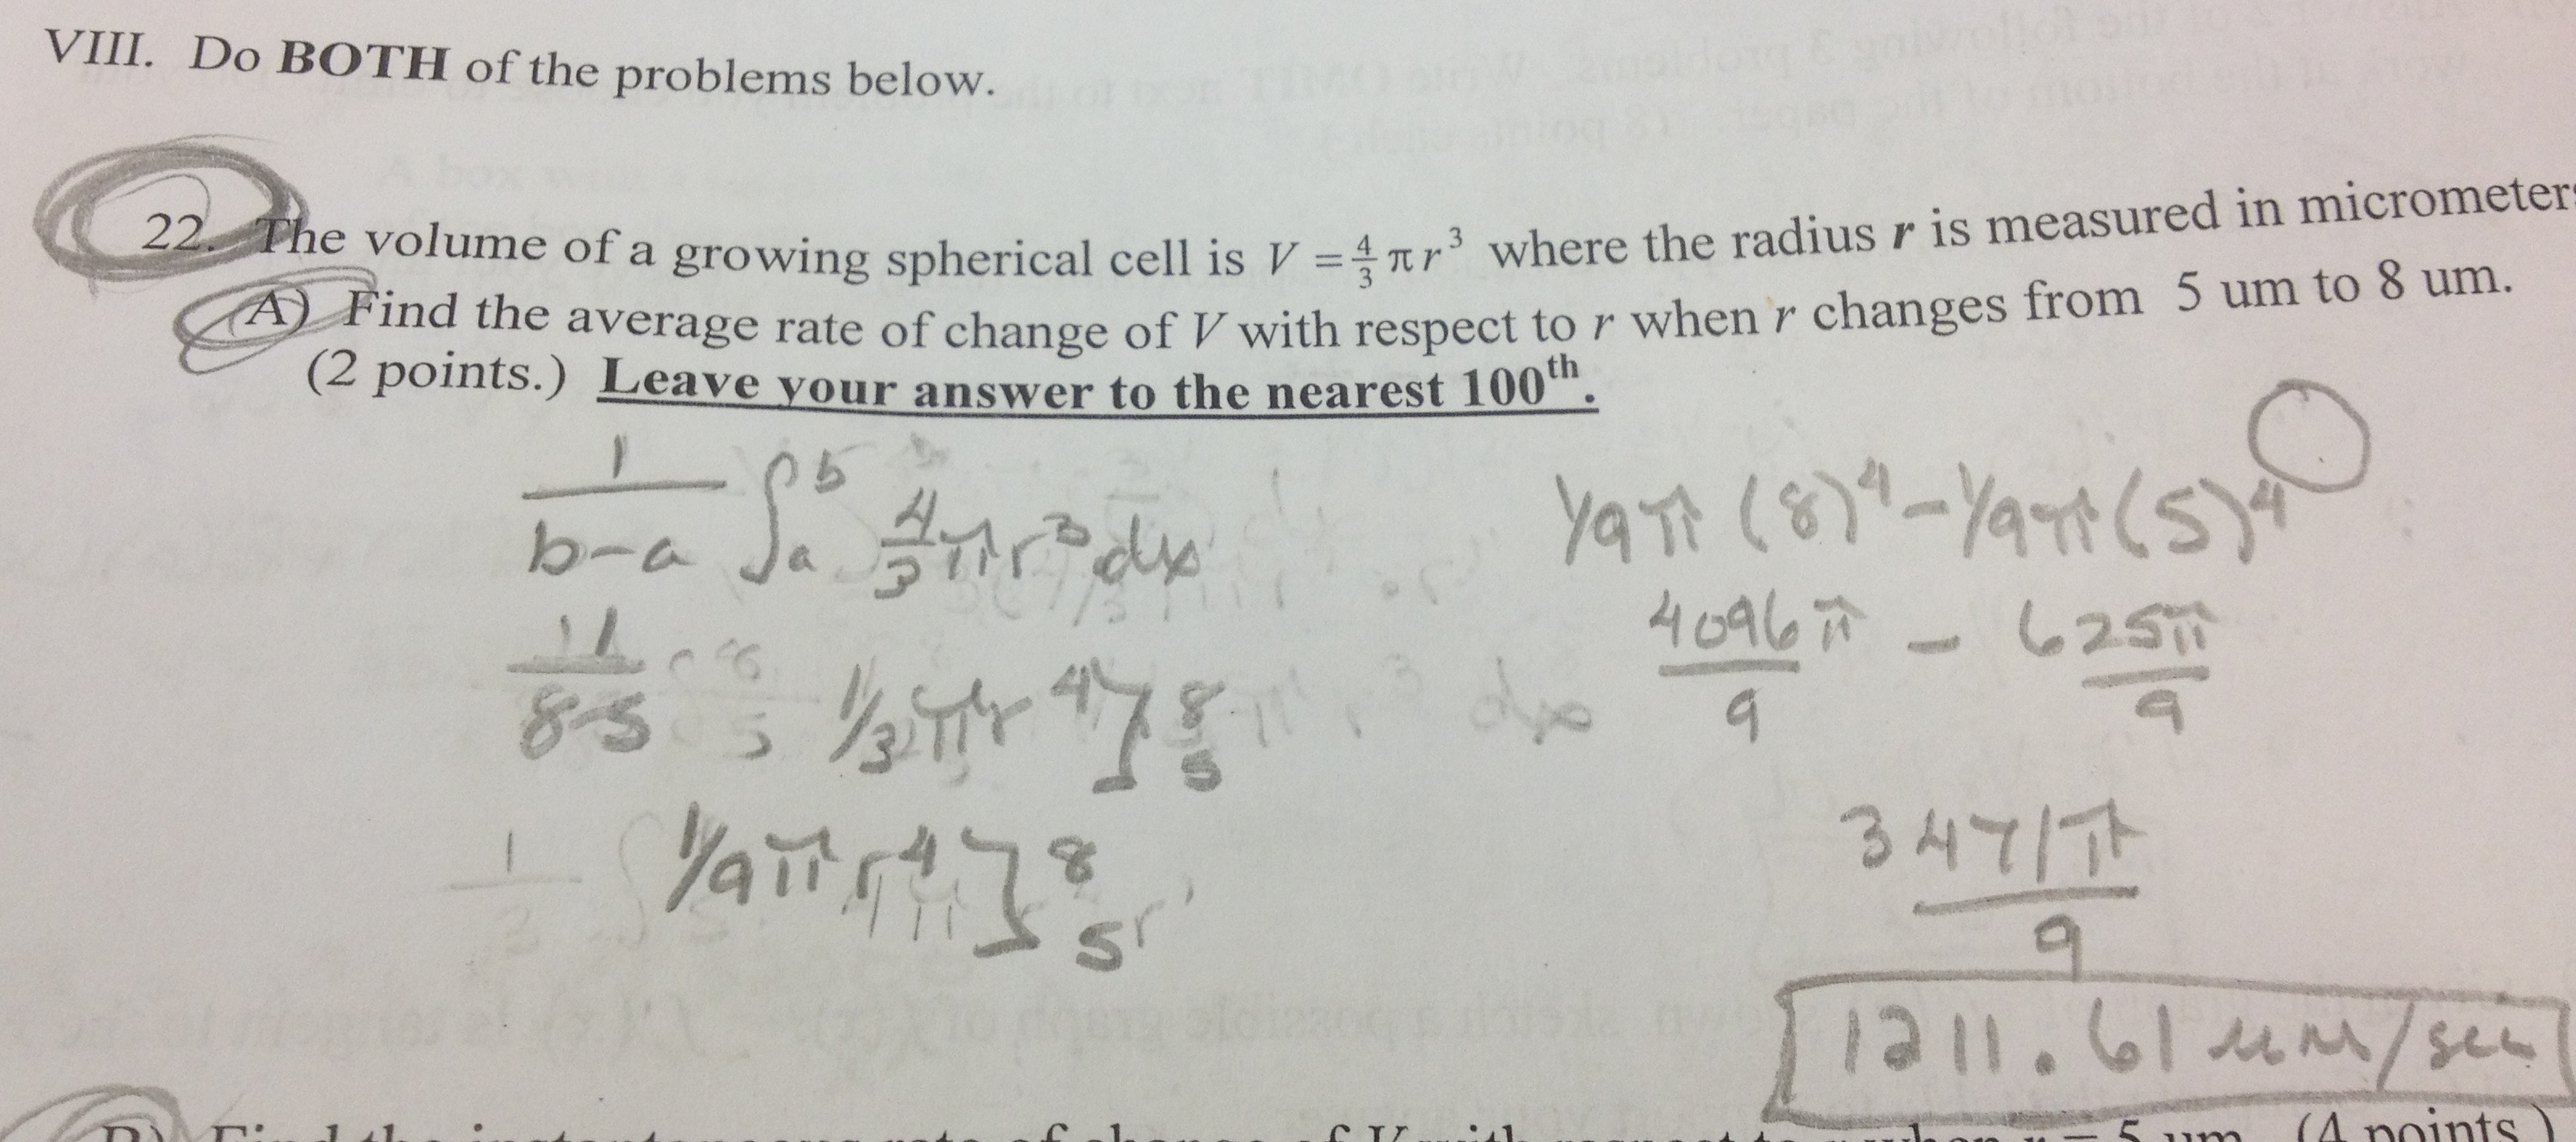 VIII. Do BOTH of the problems below.
22. The volume of a growing spherical cell is V = 4/3 π r³ where the radius r is measured in micrometers
A) Find the average rate of change of V with respect to r when r changes from 5 um to 8 um.
(2 points.) Leave your answer to the nearest 100th.
1/(b-a) ∫ₐᵇ 4/3 π r³ dx
1/(8-5) 1/3 π r⁴ ]⁸₅
1/9 π r⁴ ]⁸₅
1/9 π (8)⁴ - 1/9 π (5)⁴
4096π/9 - 625π/9
3471π/9
1211.61 μm/sec
B) Find the instantaneous rate of change of V with respect to r when r = 5 um. (4 points.)